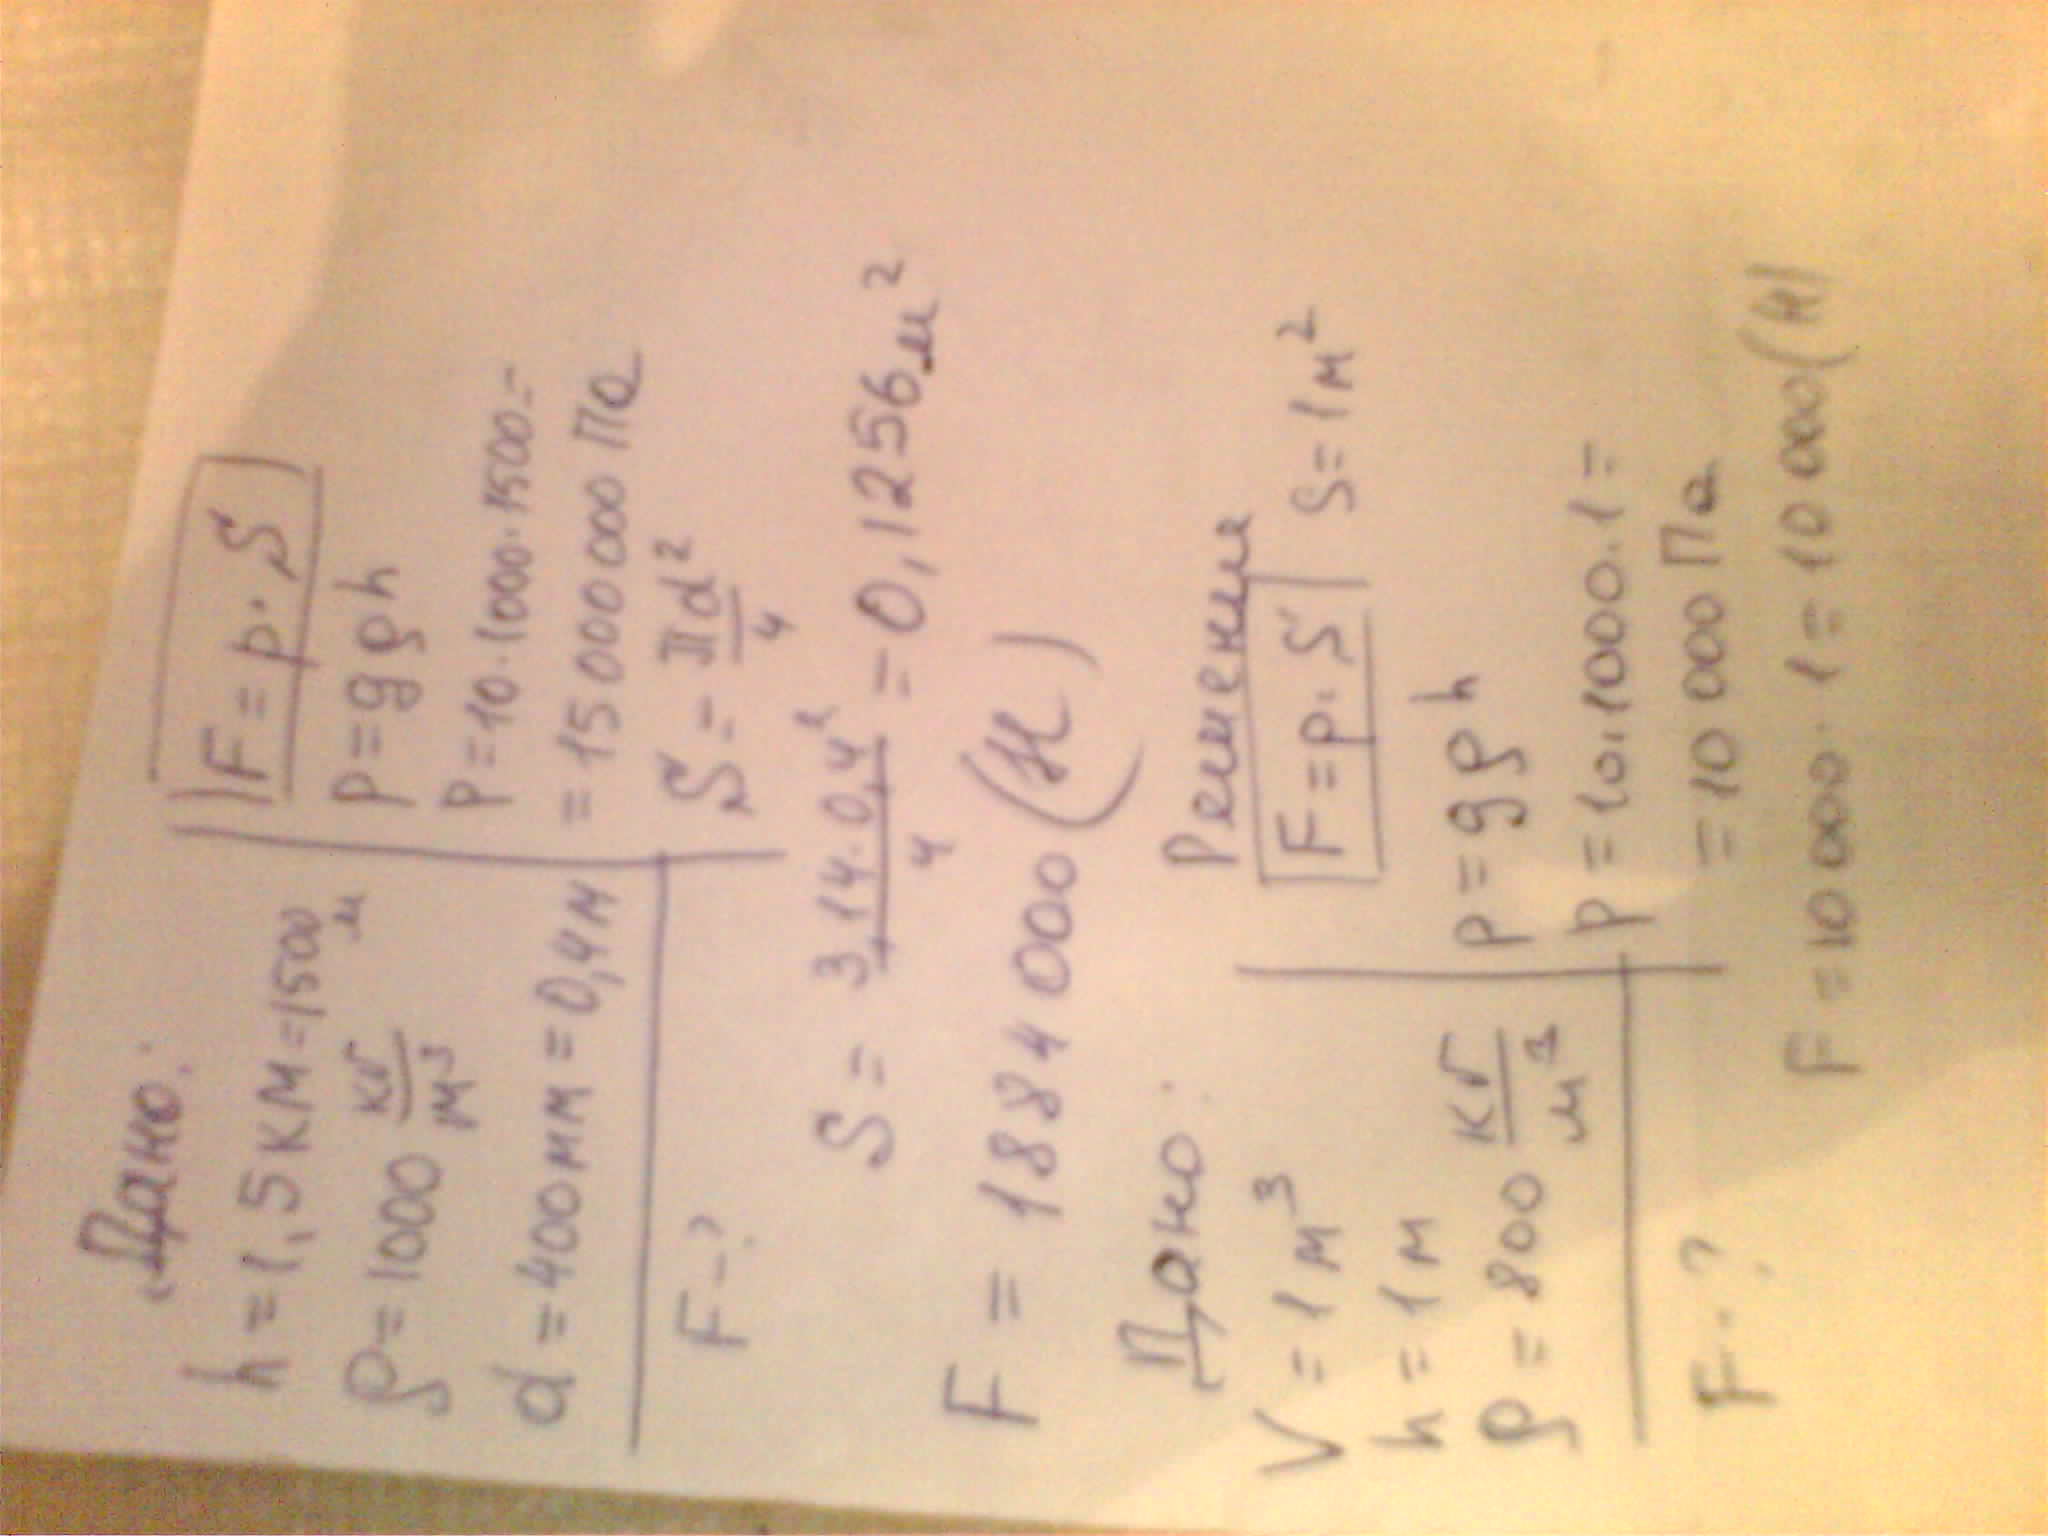 Дано:
h = 1,5 КМ = 1500 м
ρ = 1000 кг/м³
d = 400мм = 0,4м
F-?
F = p · S
P = gρh
P = 10 · 1000 · 1500 =
= 15 000 000 Па
S = πd²/4
S = 3,14 · 0,4²/4 = 0,1256 м²
F = 1884 000 (Н)
Дано:
V = 1 м³
h = 1 м
ρ = 800 кг/м³
F-?
Решении
F = p · S S = 1м²
P = gρh
P = 10 · 1000 · 1 =
= 10 000 Па
F = 10 000 · 1 = 10 000 (Н)